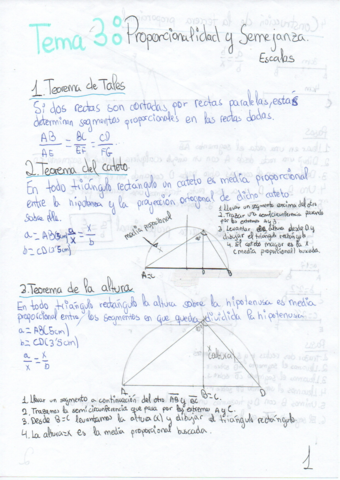 Tema 3: Proporcionalidad y Semejanza.
Escalas
1. Teorema de Tales
Si dos rectas son cortadas por rectas paralelas, estas
determina segmentos proporcionales en las rectas dadas.
AB/AE = BC/EF = CD/FG
2. Teorema del cateto
En todo triángulo rectángulo un cateto es media proporcional
entre la hipotenusa y la proyección ortogonal de dicho cateto
sobre ella.
a = AB(5cm) a/x = x/b
b = CD(3'5cm)
media proporcional
1. Llevar un segmento encima del otro.
2. Trazar la semicircunferencia pasando
por los extremos A y B
3. Levantar altura desde D y
dibujar el triángulo rectángulo
4. El cateto mayor es la x
(media proporcional buscada.
A=C
D
B
3. Teorema de la altura
En todo triángulo rectángulo la altura sobre la hipotenusa es media
proporcional entre los segmentos en que queda dividida la hipotenusa
a = AB(5cm)
b = CD(3'5cm)
a/x = x/b
x
(altura)
A
B=C
D
1. Llevar un segmento a continuación del otro
2. Trazamos la semicircunferencia que pasa por los extremos A y C.
3. Desde B=C levantamos la altura (x) y dibujar el triángulo rectángulo.
4. La altura=x es la media proporcional buscada.
1